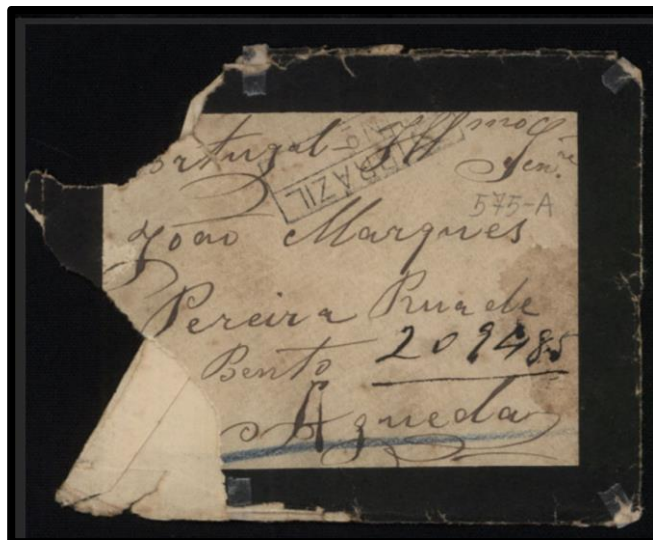 Portugal Illmo Snr.
BRAZIL
Sen.
575-A
João Marques
Pereira Rua de
Bento 209485
Agueda